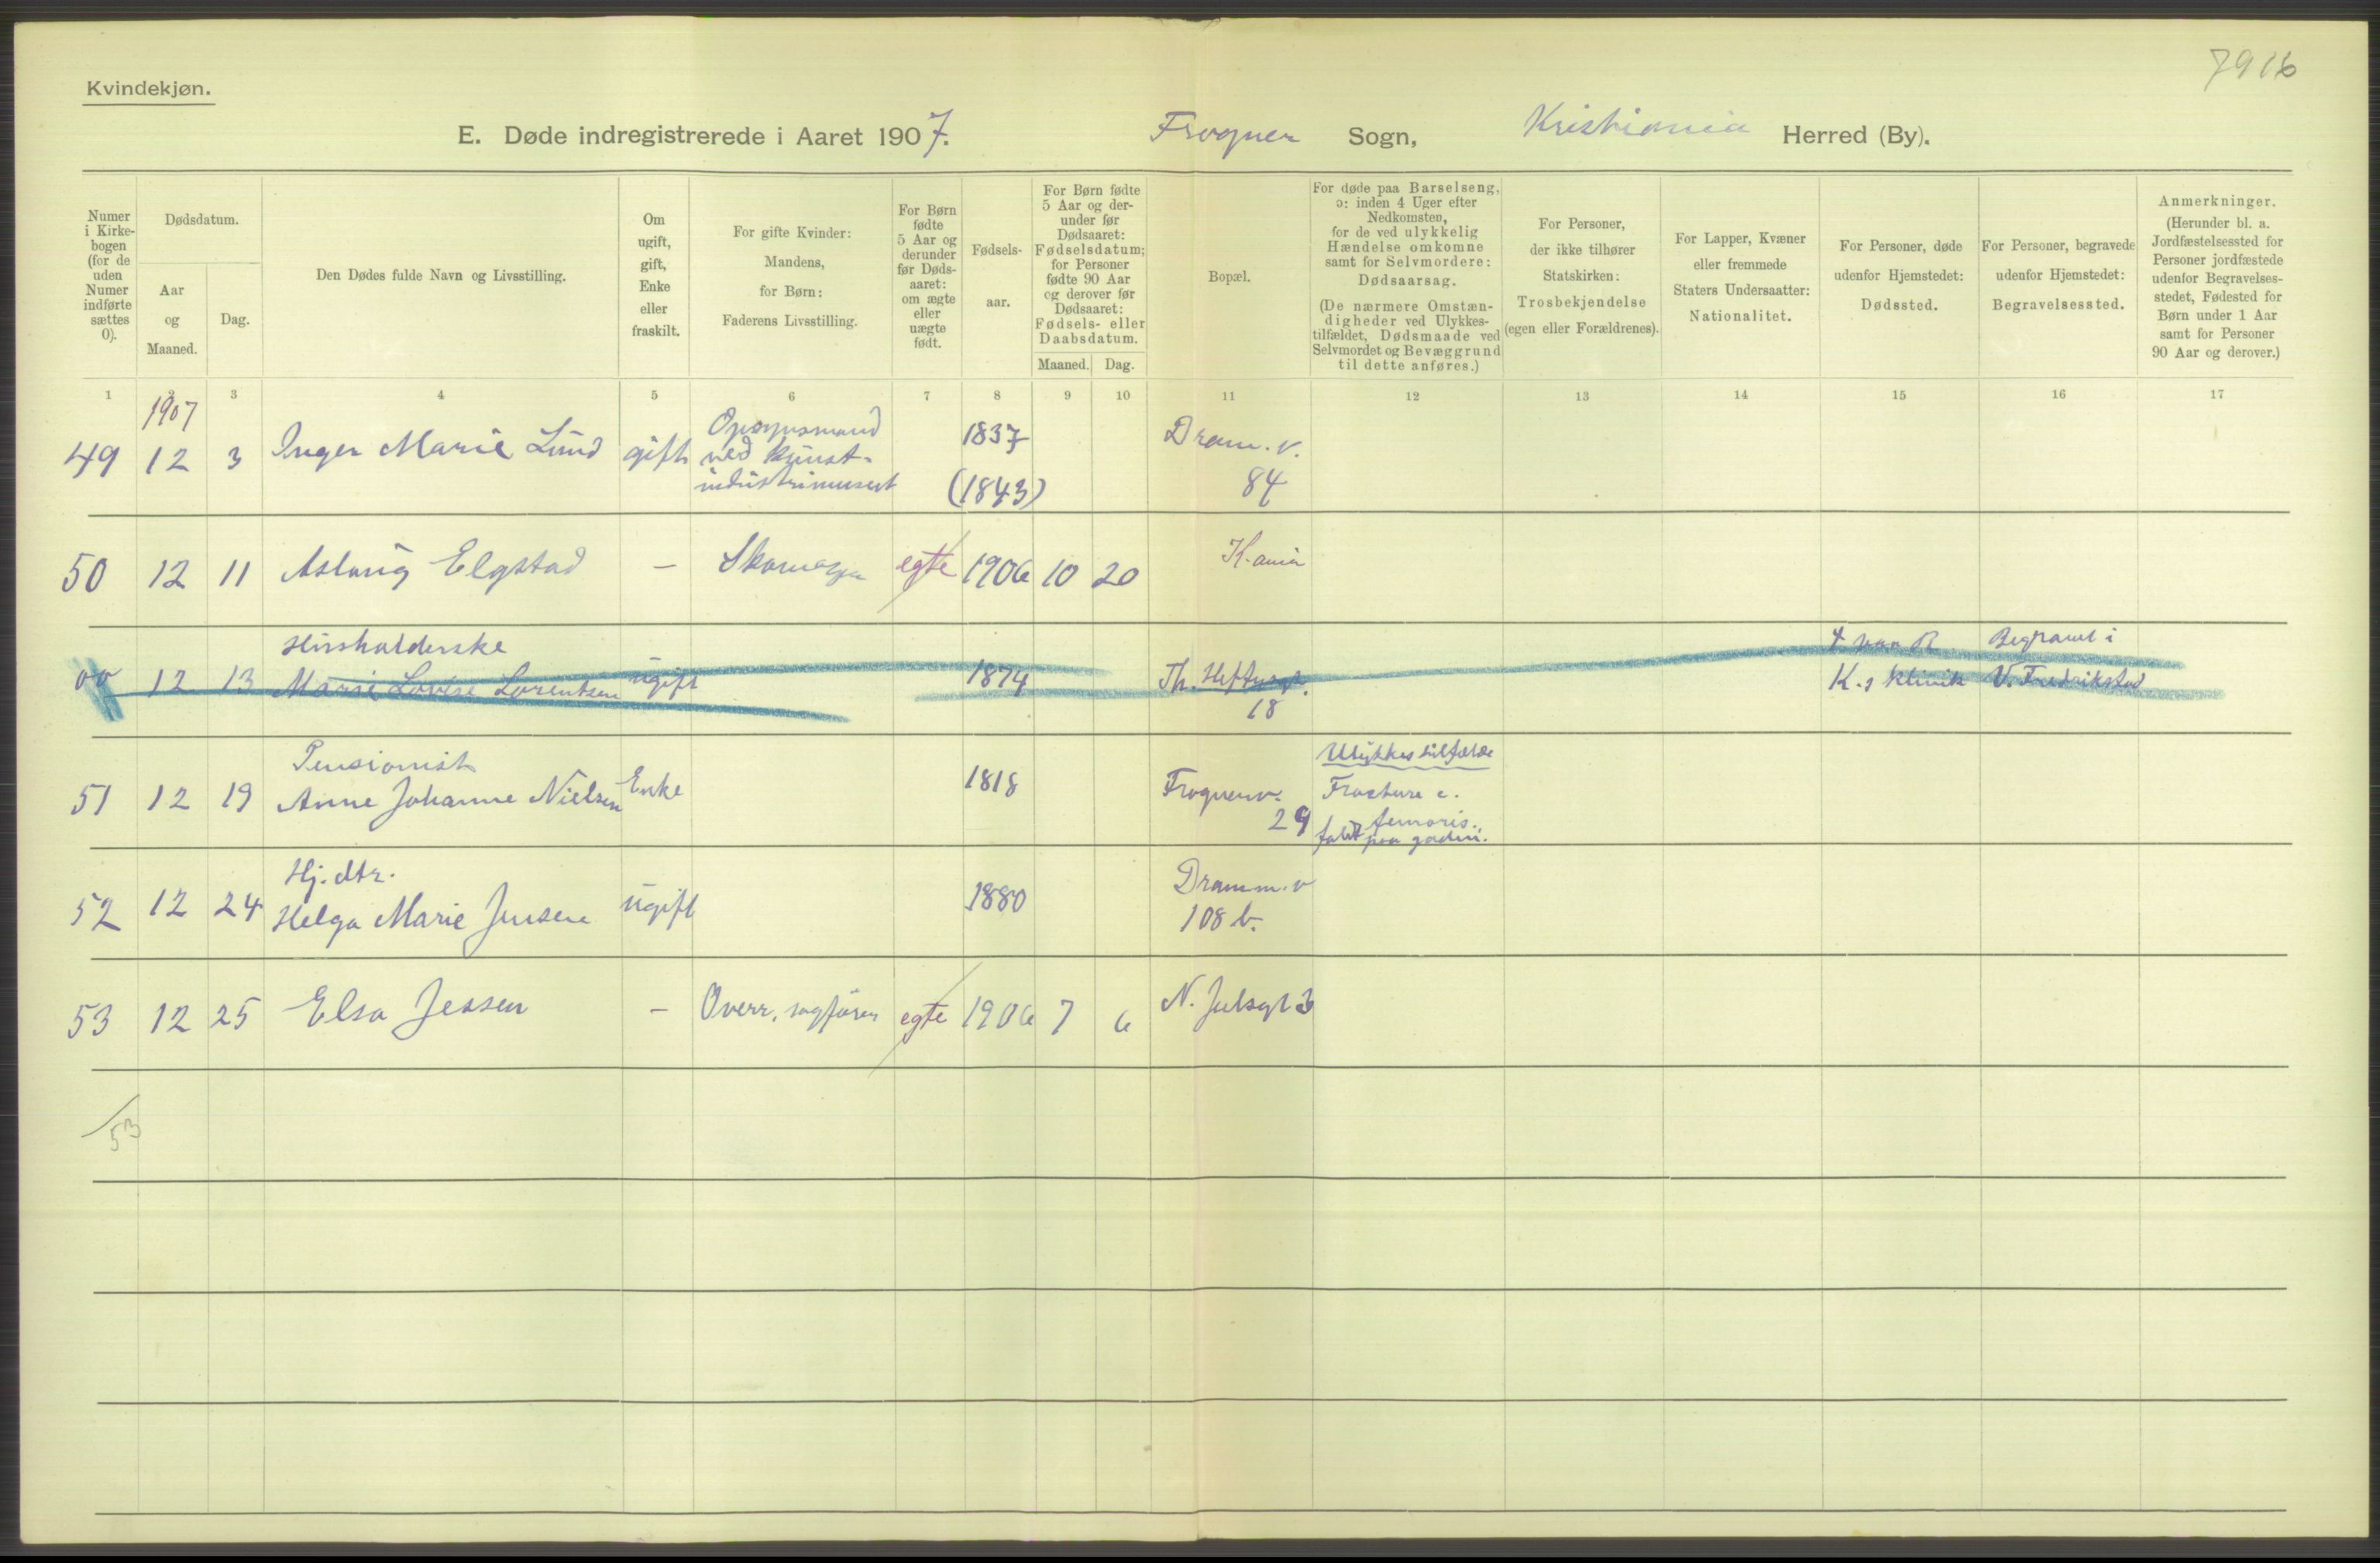 7916
Kvindekjøn.
E. Døde indregistrerede i Aaret 1907. Frogner Sogn, Kristiania Herred (By).
Numer i Kirkebogen (for de uden Numer indførte sættes 0).
Dødsdatum.
Aar og Maaned.
Dag.
Den Dødes fulde Navn og Livsstilling.
Om ugift, gift, Enke eller fraskilt.
For gifte Kvinder: Mandens, for Børn: Faderens Livsstilling.
For Børn fødte 5 Aar og derunder før Dødsaaret: om ægte eller uægte født.
Fødselsaar.
For Børn fødte 5 Aar og derunder før Dødsaaret: Fødselsdatum; for Personer fødte 90 Aar og derover før Dødsaaret: Fødsels- eller Daabsdatum.
Maaned. Dag.
Bopæl.
For døde paa Barselseng, ɔ: inden 4 Uger efter Nedkomsten, for de ved ulykkelig Hændelse omkomne samt for Selvmordere: Dødsaarsag.
(De nærmere Omstændigheder ved Ulykkestilfældet, Dødsmaade ved Selvmordet og Bevæggrund til dette anføres.)
For Personer, der ikke tilhører Statskirken: Trosbekjendelse (egen eller Forældrenes).
For Lapper, Kvæner eller fremmede Staters Undersaatter: Nationalitet.
For Personer, døde udenfor Hjemstedet: Dødssted.
For Personer, begravede udenfor Hjemstedet: Begravelsessted.
Anmerkninger.
(Herunder bl. a. Jordfæstelsessted for Personer jordfæstede udenfor Begravelsesstedet, Fødested for Børn under 1 Aar samt for Personer 90 Aar og derover.)
1 2 3 4 5 6 7 8 9 10 11 12 13 14 15 16 17
1907
49 12 3 Inger Marie Lund gift Opsynsmand ved kunstindustrimuseet 1837 (1843) Dram. v. 84
50 12 11 Aslaug Elgstad — Skomager egte 1906 10 20 K.ania
Husholderske
00 12 13 Marie Lovise Lorentsen ugift 1874 Th. Heftyesgt. 18 K.s klinik Begravet i V. Fredrikstad
Pensionist
51 12 19 Anne Johanne Nielsen Enke 1818 Frognerv. 29 Ulykkestilfælde Fracture c. femoris. faldt paa gaden.
Hj. dtr.
52 12 24 Helga Marie Jensen ugift 1880 Dramm. v 108 b.
53 12 25 Elsa Jessen — Overr. sagfører egte 1906 7 6 N. Julsgt 3
53